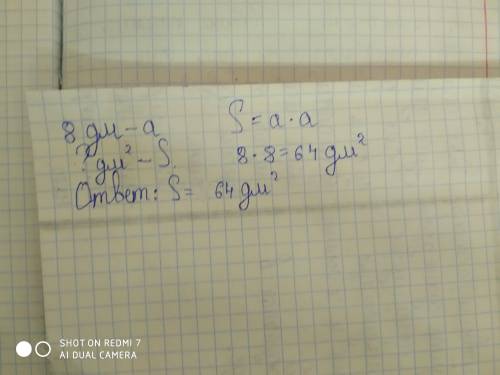 8 дм - а S = а · а
? дм² - S. 8 · 8 = 64 дм²
Ответ: S = 64 дм²
SHOT ON REDMI 7
AI DUAL CAMERA